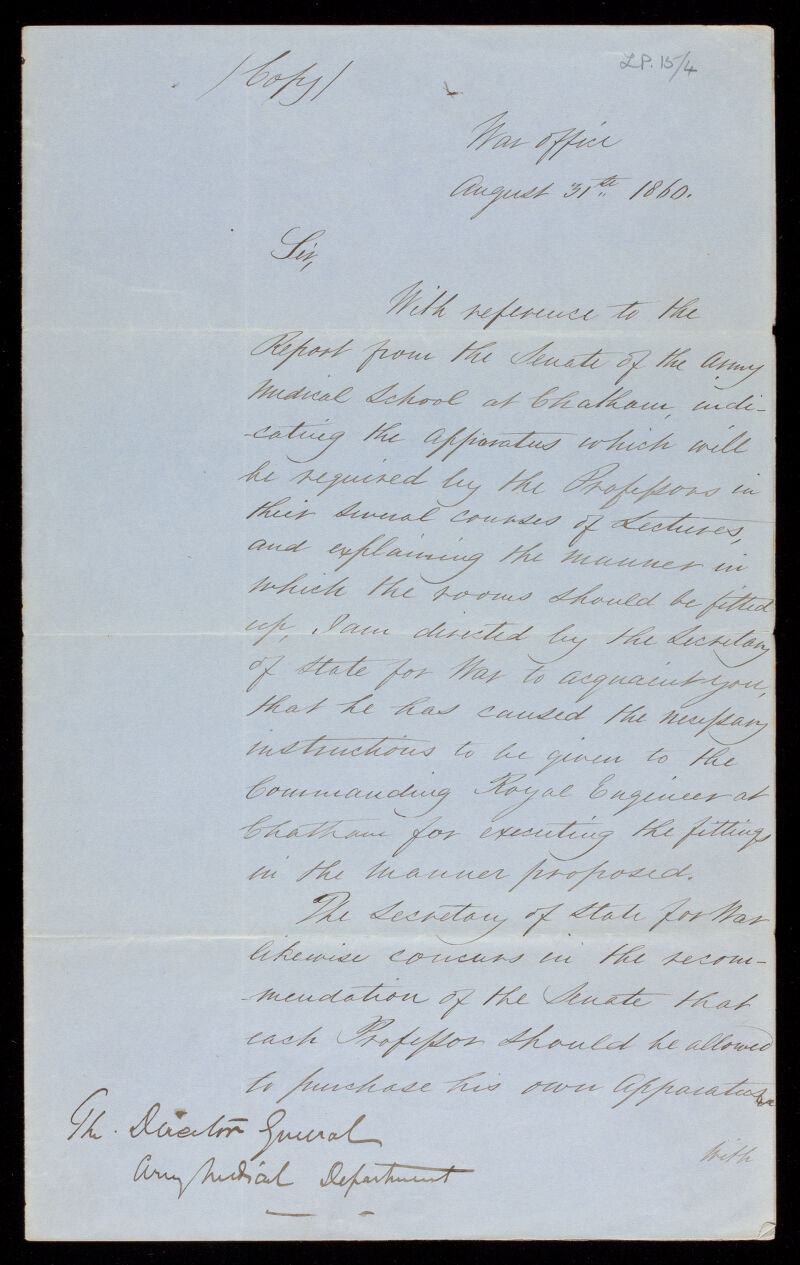 LP. 15/4
(Copy)
War Office
August 31st 1860.
Sir,
With reference to the
Report from the Senate of the Army
Medical School at Chatham, indi-
-cating the apparatus which will
be required by the Professors in
their several courses of Lectures,
and explaining the manner in
which the rooms should be fitted
up, I am directed by the Secretary
of State for War to acquaint you,
that he has caused the necessary
instructions to be given to the
Commanding Royal Engineer at
Chatham for executing the fittings
in the manner proposed.
The Secretary of State for War
likewise concurs in the recom-
-mendation of the Senate that
each Professor should be allowed
to purchase his own Apparatus
With
The Director General
Army Medical Department